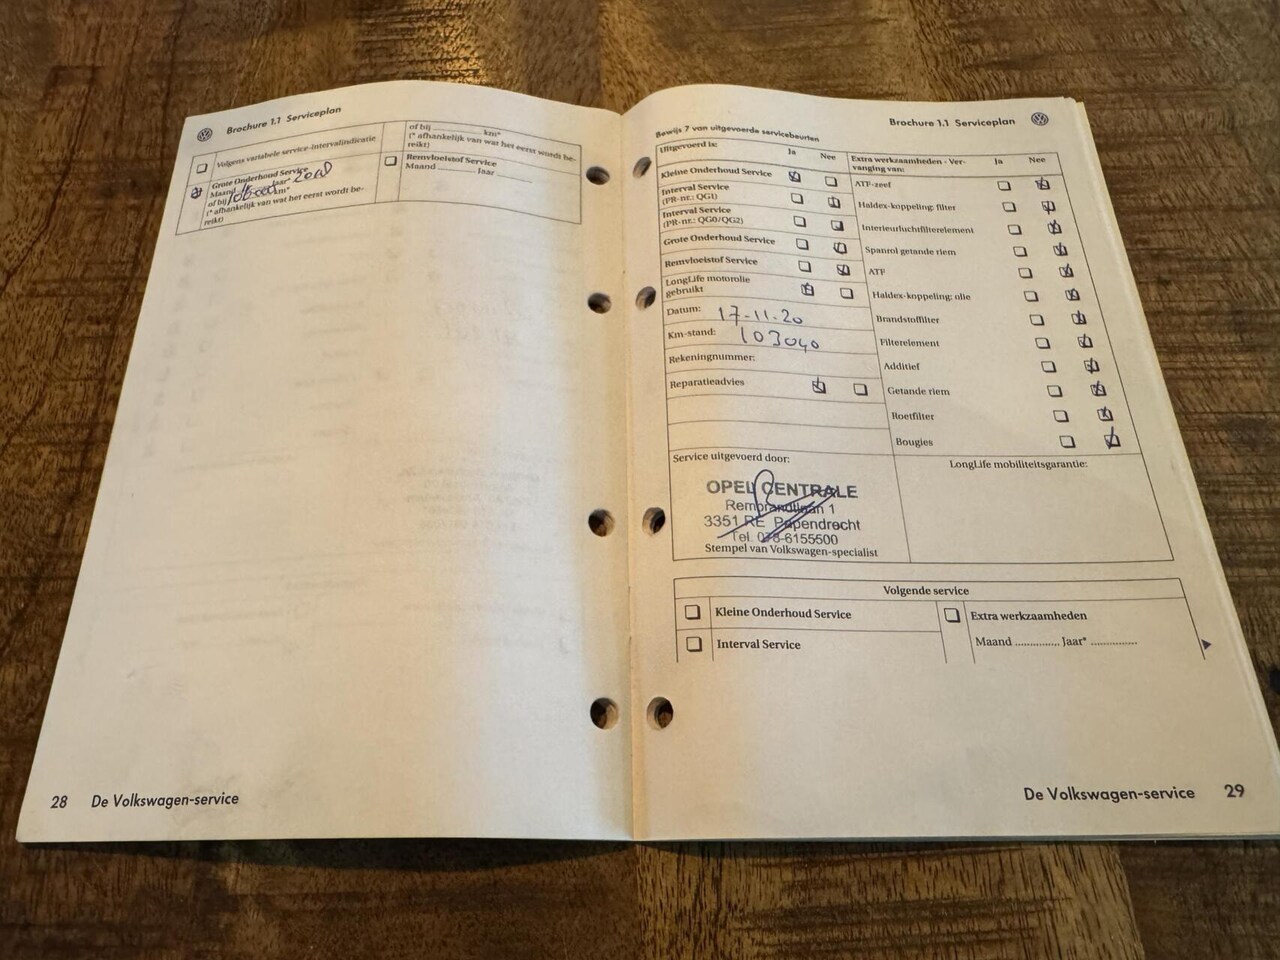 Brochure 1.1 Serviceplan
Volgens variabele service-intervalindicatie
Grote Onderhoud Service
Maand jaar*
of bij km*
(* afhankelijk van wat het eerst wordt be-
reikt)
of bij ................ km*
(* afhankelijk van wat het eerst wordt be-
reikt)
Remvloeistof Service
Maand ............ Jaar ............
28 De Volkswagen-service
Brochure 1.1 Serviceplan
Bewijs 7 van uitgevoerde servicebeurten
Uitgevoerd is: Ja Nee
Kleine Onderhoud Service
Interval Service
(PR-nr.: QG1)
Interval Service
(PR-nr.: QG0/QG2)
Grote Onderhoud Service
Remvloeistof Service
LongLife motorolie
gebruikt
Datum: 17-11-20
Km-stand: 103040
Rekeningnummer:
Reparatieadvies
Extra werkzaamheden - Ver-
vanging van: Ja Nee
ATF-zeef
Haldex-koppeling: filter
Interieurluchtfilterelement
Spanrol getande riem
ATF
Haldex-koppeling: olie
Brandstoffilter
Filterelement
Additief
Getande riem
Roetfilter
Bougies
Service uitgevoerd door:
OPEL CENTRALE
Rembrandtlaan 1
3351 RE Papendrecht
Tel. 078-6155500
Stempel van Volkswagen-specialist
LongLife mobiliteitsgarantie:
Volgende service
Kleine Onderhoud Service
Interval Service
Extra werkzaamheden
Maand .............. Jaar* ..............
De Volkswagen-service 29